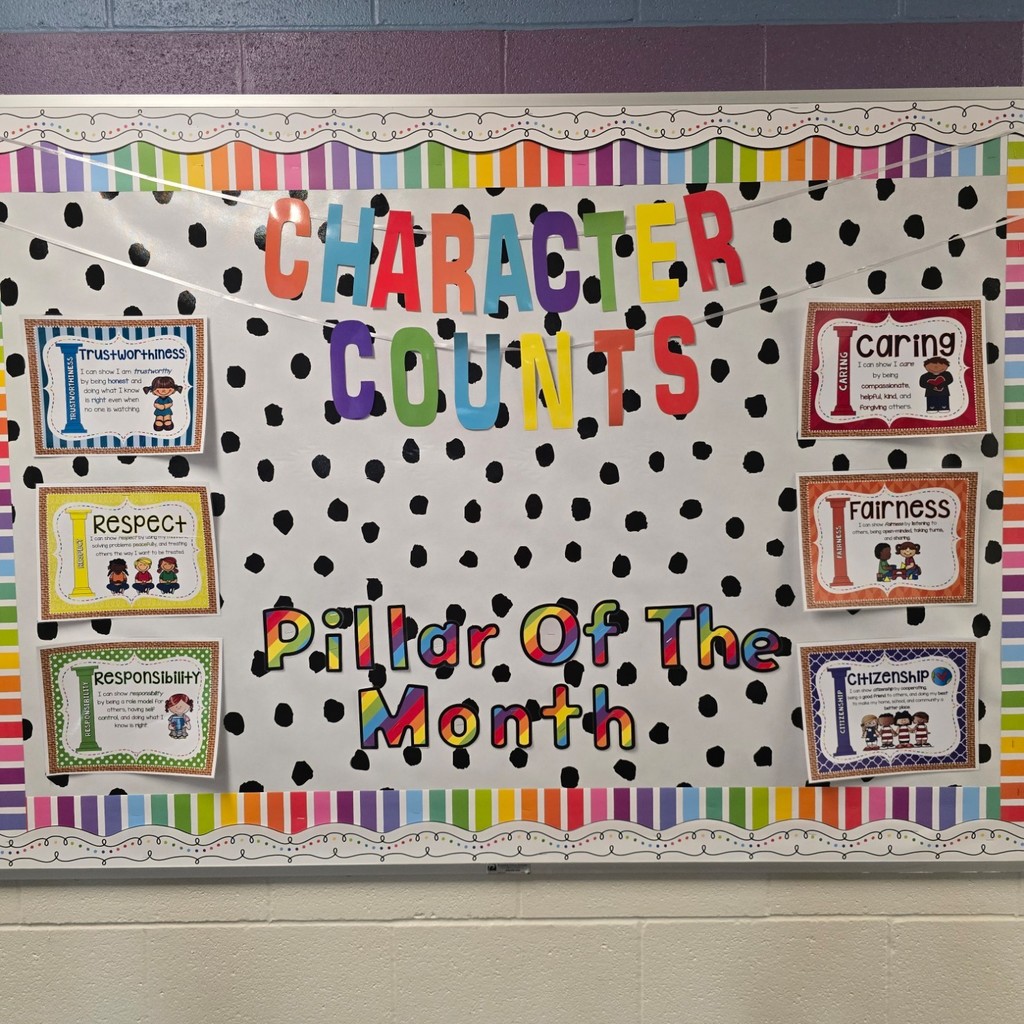 CHARACTER
COUNTS
Trustworthiness
TRUSTWORTHINESS
I can show I am trustworthy
by being honest and
doing what I know
is right even when
no one is watching.
Respect
RESPECT
I can show respect by using my
solving problems peacefully, and treating
others the way I want to be treated.
Responsibility
RESPONSIBILITY
I can show responsibility
by being a role model for
others, having self
control, and doing what I
know is right.
Caring
CARING
I can show I care
by being
compassionate,
helpful, kind, and
forgiving others.
Fairness
FAIRNESS
I can show fairness by listening to
others, being open-minded, taking turns,
and sharing.
Citizenship
CITIZENSHIP
I can show citizenship by cooperating,
being a good friend to others, and doing my best
to make my home, school, and community a
better place.
Pillar Of The
Month